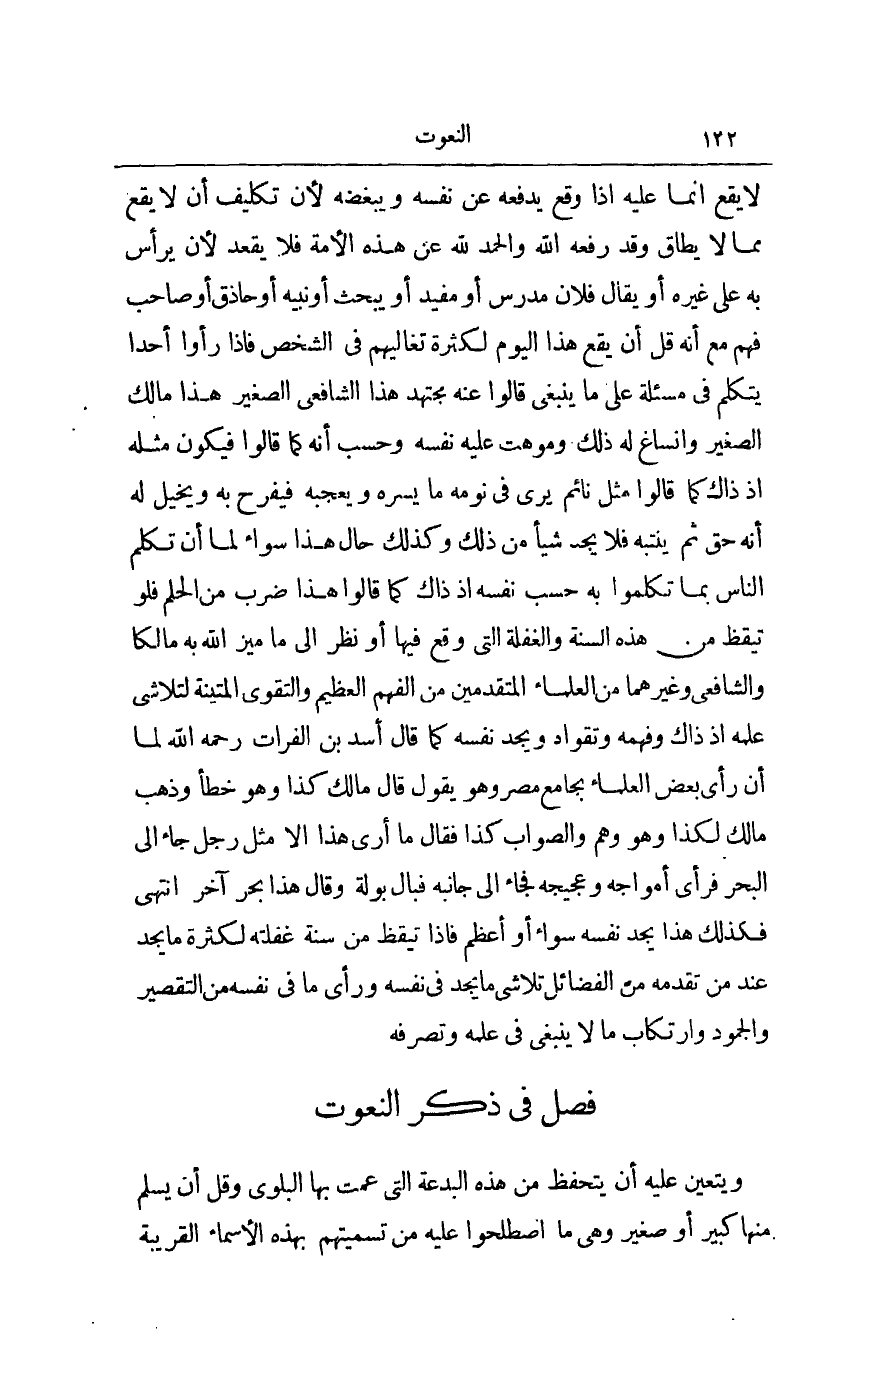 ١٢٢ النعوت
لايقع انما عليه اذا وقع يدفعه عن نفسه ويبغضه لأن تكليف أن لا يقع
مما لا يطاق وقد رفعه الله والحمد لله عن هذه الأمة فلا يقعد لأن يرأس
به على غيره أو يقال فلان مدرس أو مفيد أو يبحث أو نبيه أو حاذق أو صاحب
فهم مع أنه قل أن يقع هذا اليوم لكثرة تغاليهم فى الشخص فاذا رأوا أحدا
يتكلم فى مسئلة على ما ينبغى قالوا عنه مجتهد هذا الشافعى الصغير هذا مالك
الصغير وانساغ له ذلك وموهت عليه نفسه وحسب أنه كما قالوا فيكون مثله
اذ ذاك كما قالوا مثل نائم يرى فى نومه ما يسره ويعجبه فيفرح به ويخيل له
أنه حق ثم ينتبه فلا يجد شيأ من ذلك وكذلك حال هذا سواء لما أن تكلم
الناس بما تكلموا به حسب نفسه اذ ذاك كما قالوا هذا ضرب من الحلم فلو
تيقظ من هذه السنة والغفلة التى وقع فيها أو نظر الى ما ميز الله به مالكا
والشافعى وغيرهما من العلماء المتقدمين من الفهم العظيم والتقوى المتينة لتلاشى
علمه اذ ذاك وفهمه وتقواه ويجد نفسه كما قال أسد بن الفرات رحمه الله لما
أن رأى بعض العلماء بجامع مصر وهو يقول قال مالك كذا وهو خطأ وذهب
مالك لكذا وهو وهم والصواب كذا فقال ما أرى هذا الا مثل رجل جاء الى
البحر فرأى أمواجه وعجيجه فجاء الى جانبه فبال بولة وقال هذا بحر آخر انتهى
فكذلك هذا يجد نفسه سواء أو أعظم فاذا تيقظ من سنة غفلته لكثرة ما يجد
عند من تقدمه من الفضائل تلاشى ما يجد فى نفسه ورأى ما فى نفسه من التقصير
والجمود وارتكاب ما لا ينبغى فى علمه وتصرفه
فصل فى ذكر النعوت
ويتعين عليه أن يتحفظ من هذه البدعة التى عمت بها البلوى وقل أن يسلم
منها كبير أو صغير وهى ما اصطلحوا عليه من تسميتهم بهذه الأسماء القريبة